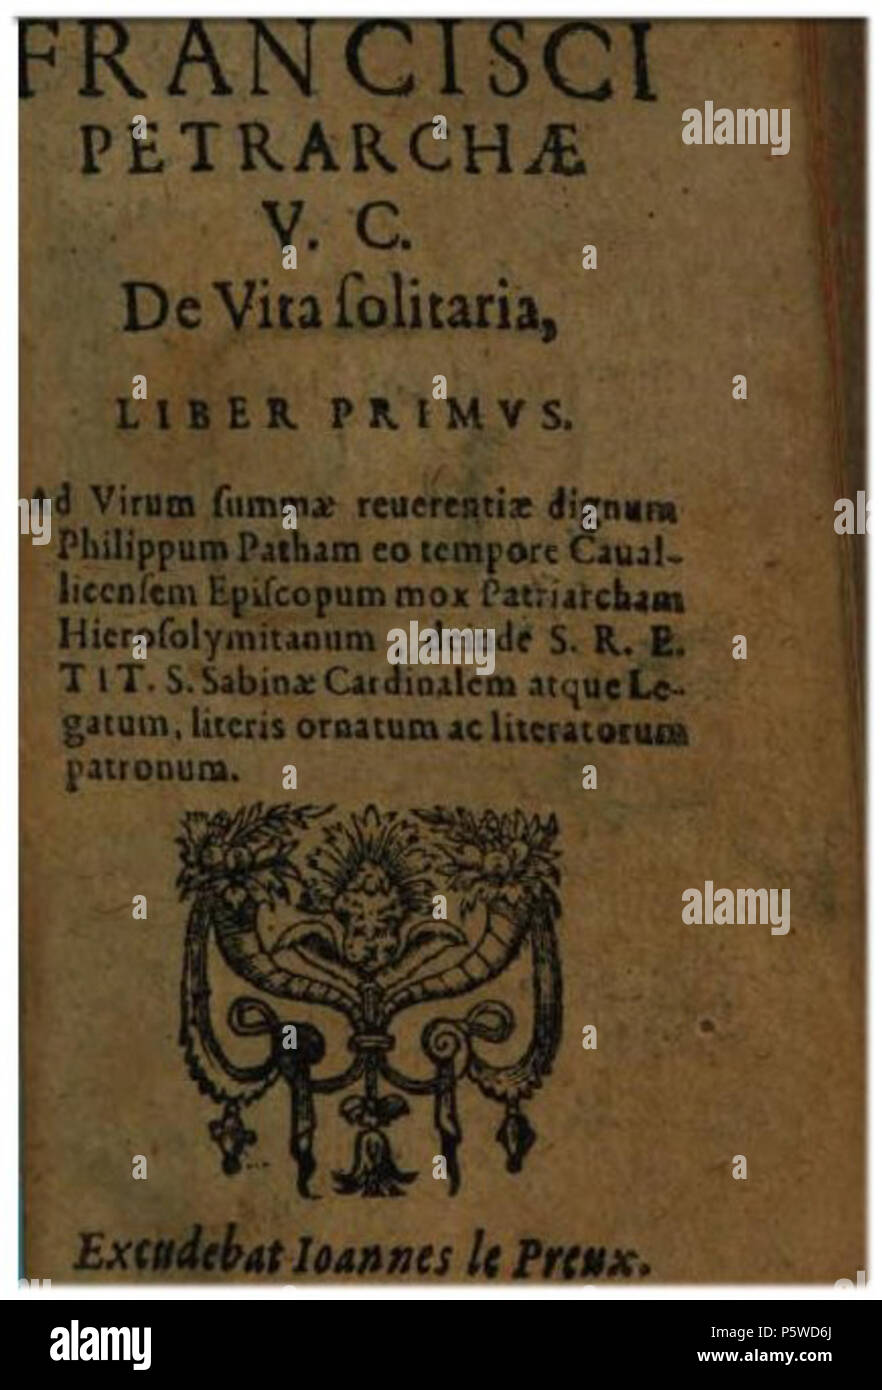 FRANCISCI
PETRARCHÆ
V. C.
De Vita ſolitaria,
LIBER PRIMVS.
Ad Virum ſummæ reuerentiæ dignum
Philippum Patham eo tempore Caual-
licenſem Epiſcopum mox Patriarcham
Hieroſolymitanum, deinde S. R. E.
TIT. S. Sabinæ Cardinalem atque Le-
gatum, literis ornatum ac literatorum
patronum.
Excudebat Ioannes le Preux.
alamy
a
alamy
Image ID: P5WD6J
www.alamy.com